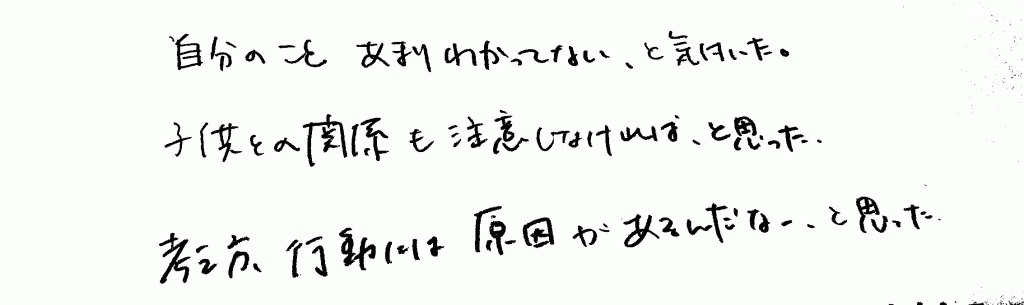 自分のこと あまりわかってない、と気付いた。
子供との関係も注意しなければ、と思った.
考え方、行動には原因があるんだなー、と思った.